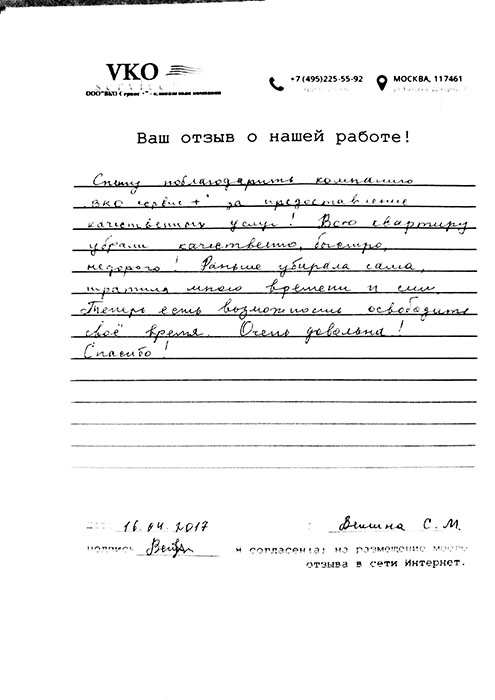 VKO
SERVICE
ООО"ВКО Сервис +" - клининговая компания
+7 (495)225-55-92
МОСКВА, 117461
Ваш отзыв о нашей работе!
Спешу поблагодарить компанию
"ВКО сервис +" за предоставление
качественных услуг! Всю квартиру
убрали качественно, быстро,
недорого! Раньше убирала сама,
тратила много времени и сил.
Теперь есть возможность освободить
своё время. Очень довольна!
Спасибо!
16.04.2017
С. М.
подпись
Я согласен(а) на размещение моего
отзыва в сети Интернет.